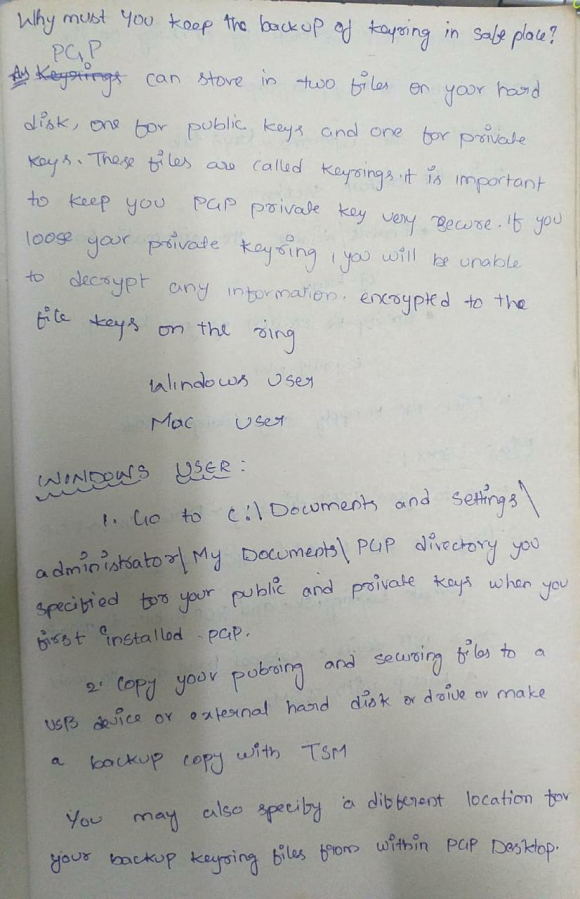 Why must you keep the backup of keyring in safe place?
PGP
Ans Keyrings can store in two files on your hard
disk, one for public keys and one for private
keys. These files are called keyrings. it is important
to keep you PGP private key very secure. If you
loose your private keyring, you will be unable
to decrypt any information. encrypted to the
file keys on the ring
Windows User
Mac User
WINDOWS USER:
1. Go to C:\Documents and Settings\
administrator\My Documents\PGP directory you
specified for your public and private keys when you
first installed PGP.
2. Copy your pubring and secring files to a
USB device or external hard disk or drive or make
a backup copy with TSM
You may also specify a different location for
your backup keyring files from within PGP Desktop.